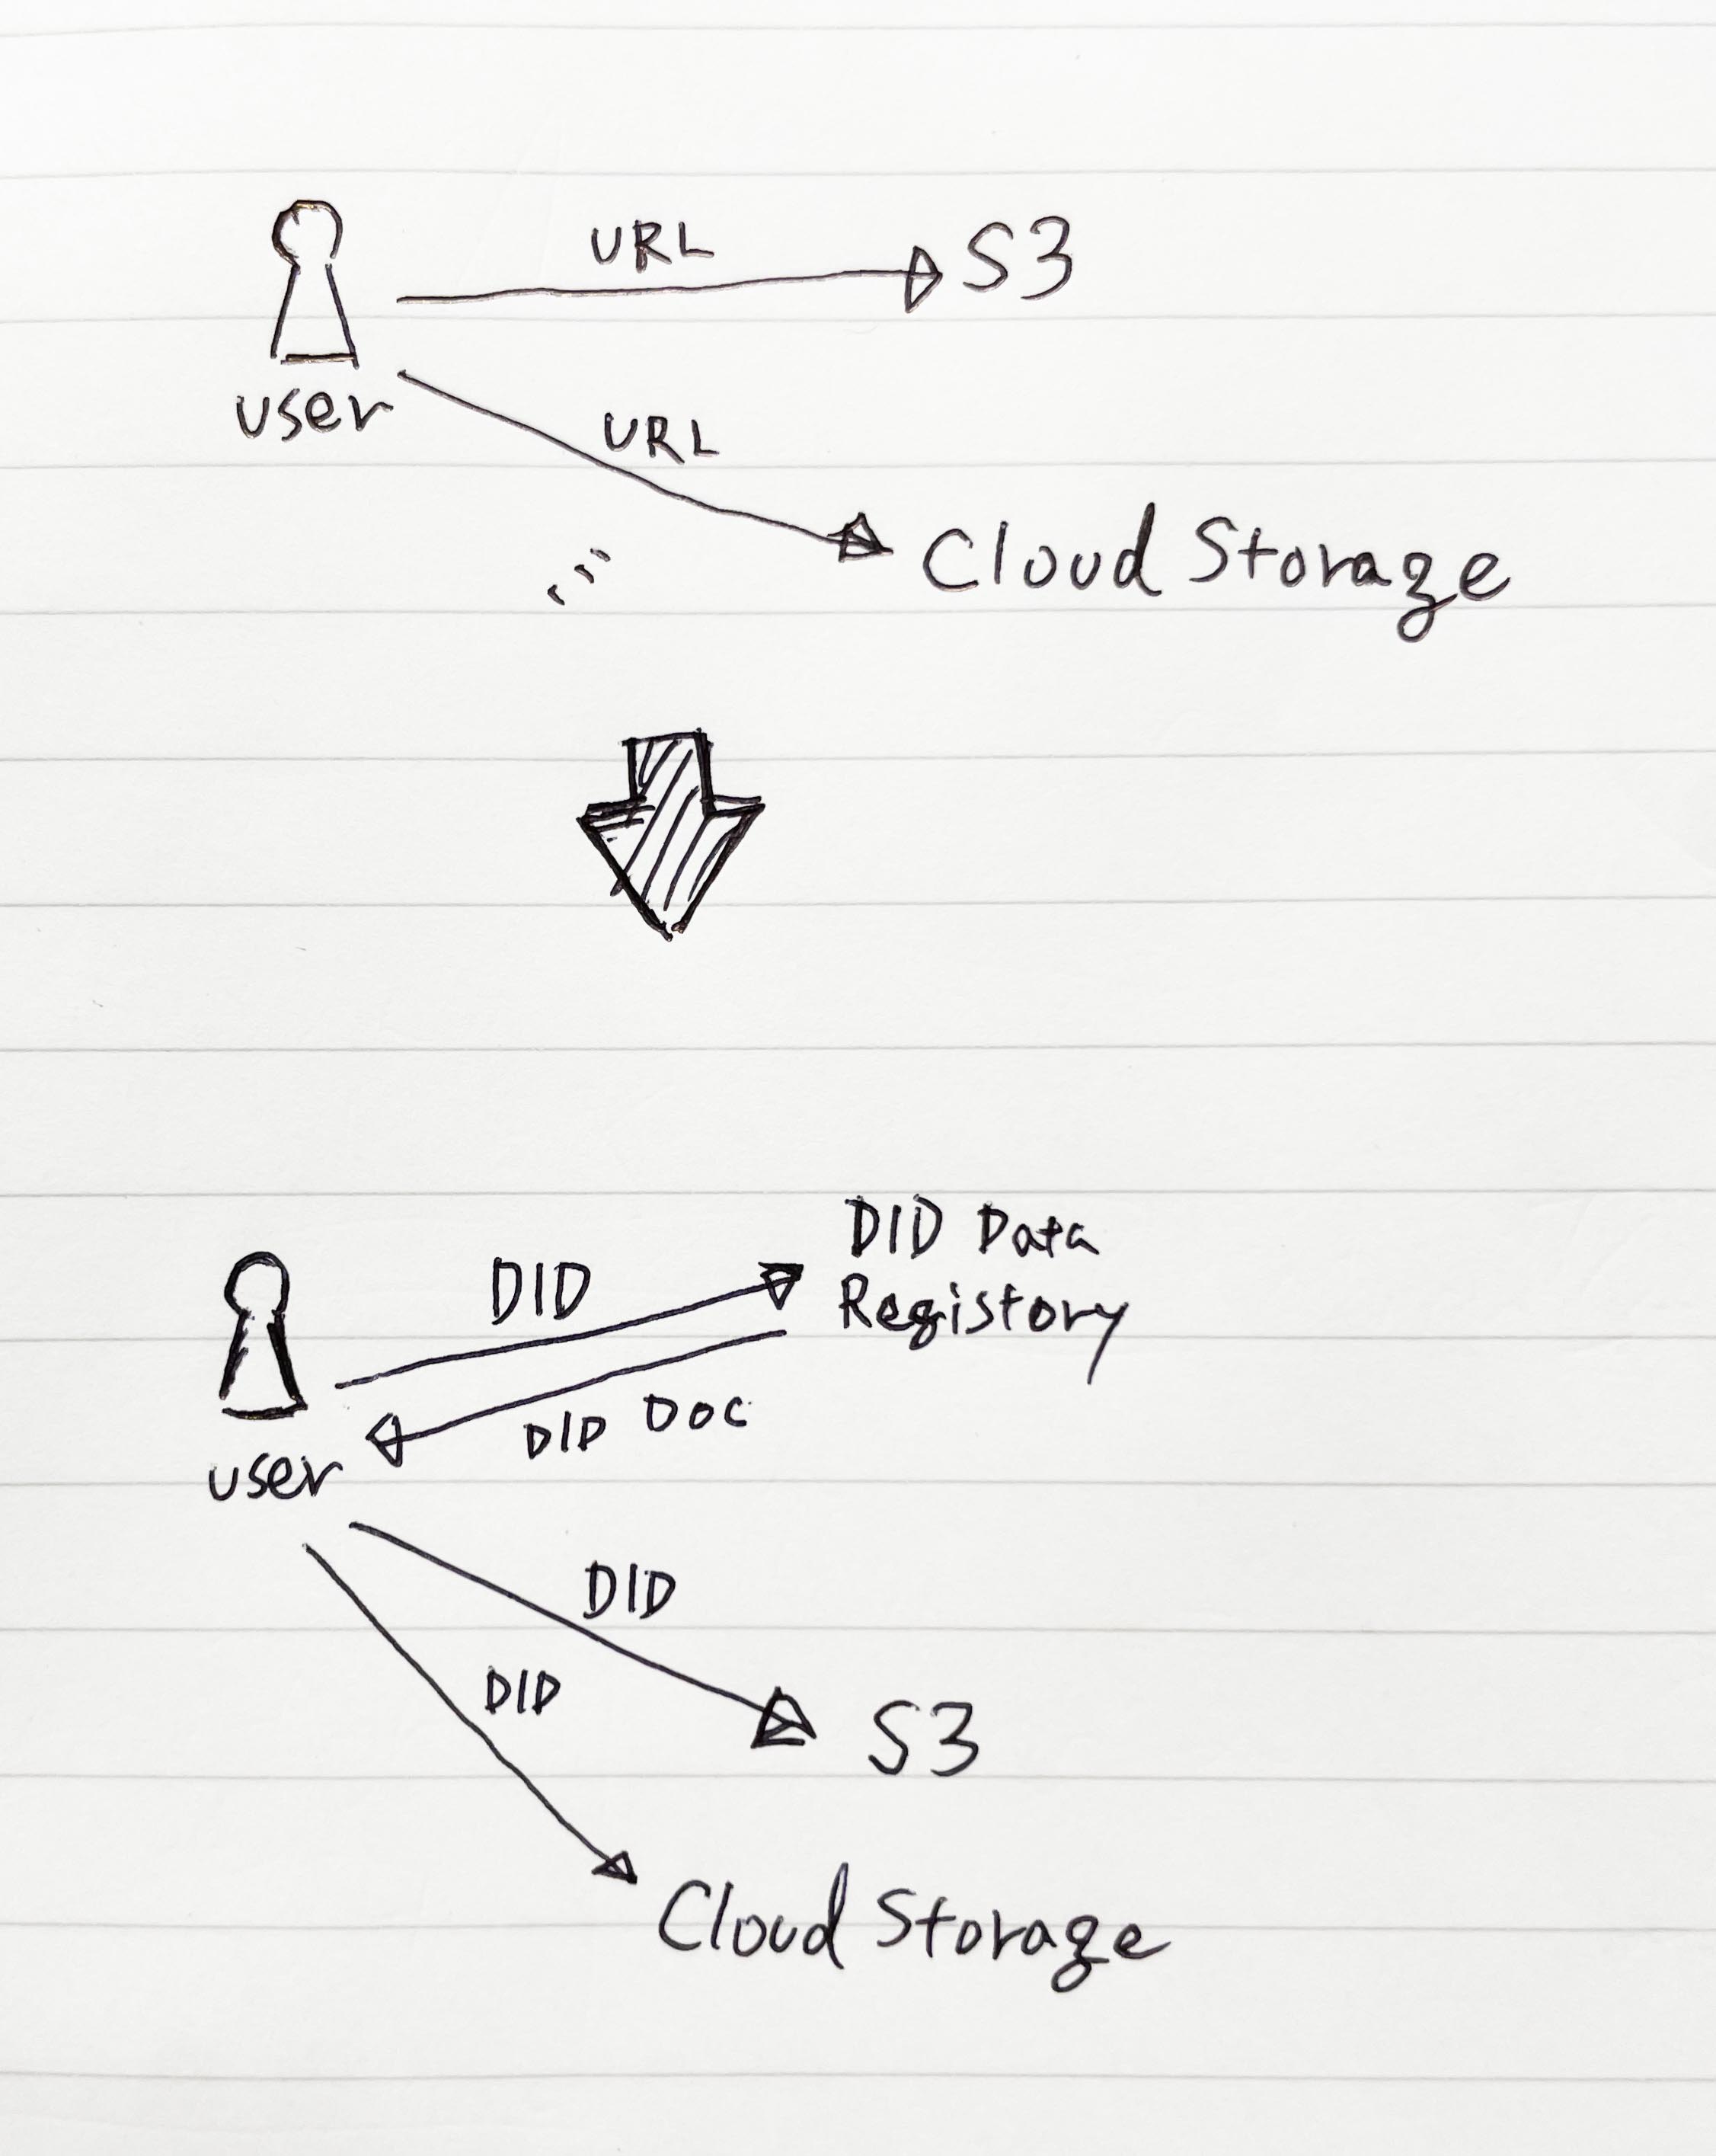 URL
S3
user
URL
Cloud Storage
DID Data
Registory
DID
DID Doc
user
DID
DID
S3
Cloud Storage